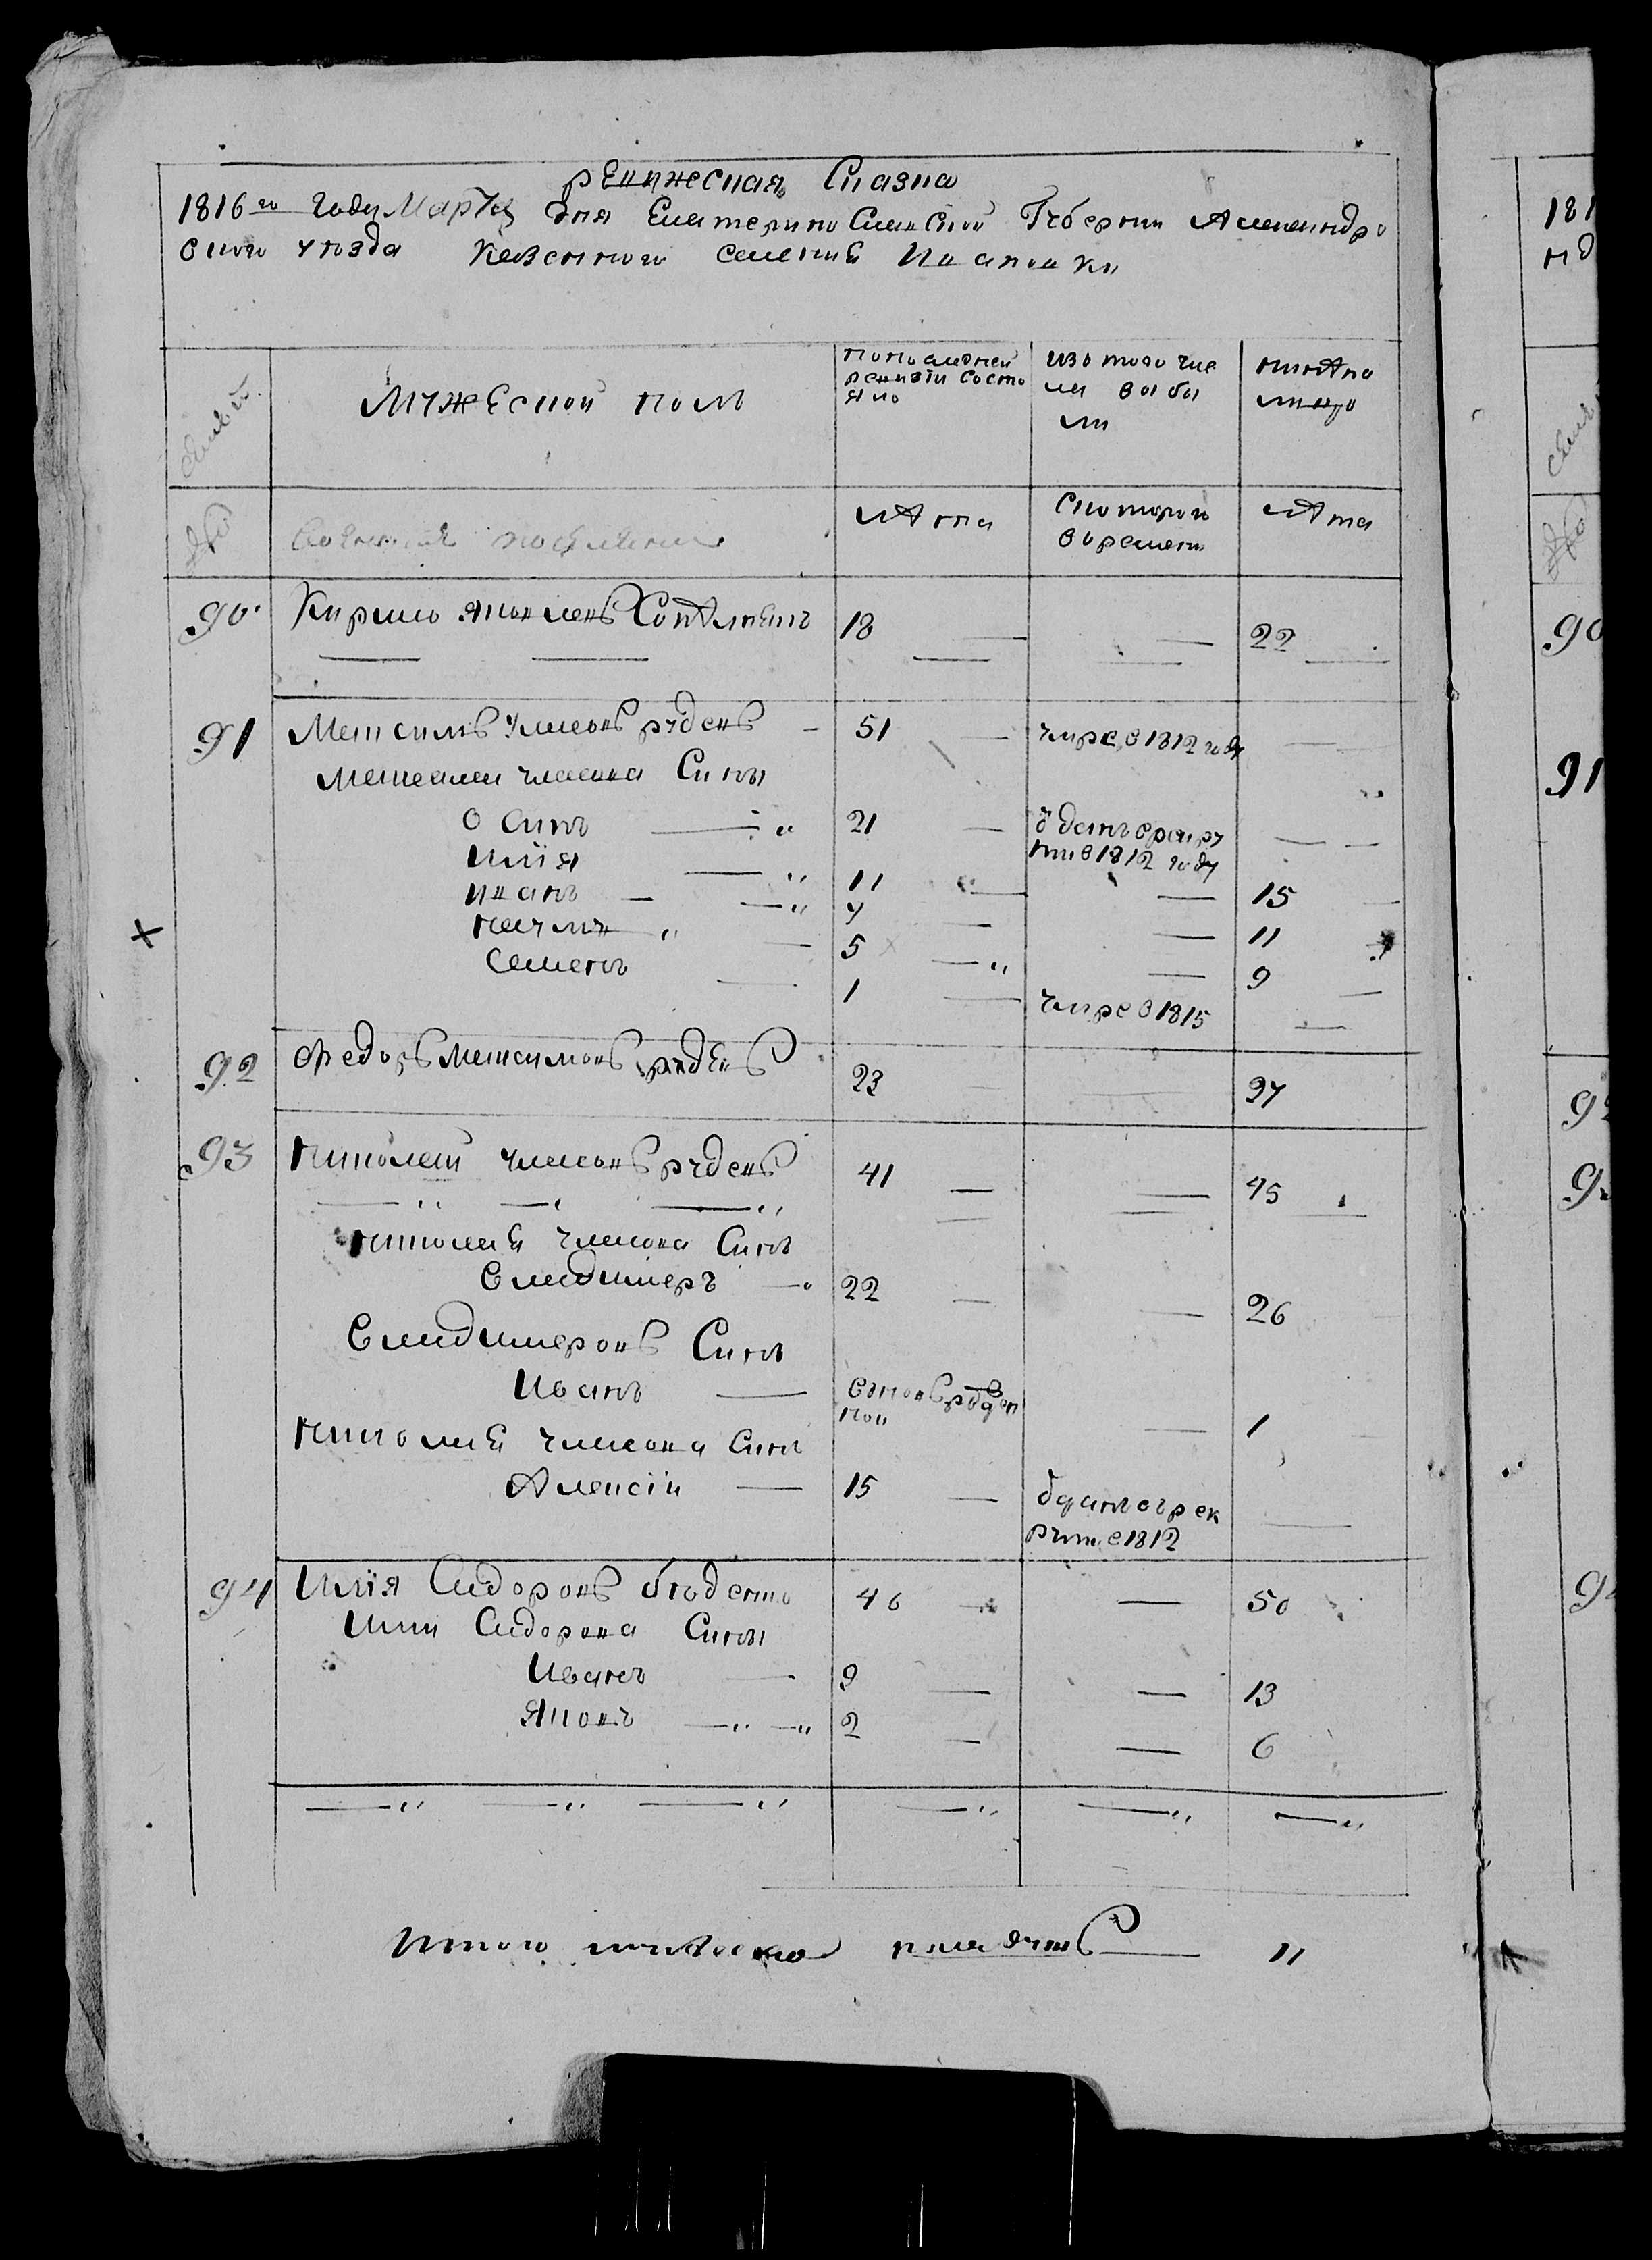 ревижская Сказка
1816го Году Марта дня Екатерино Славской Губернии Александро
вского уезда Казенного селения Ивановки
семьи
Мужеской полъ
попоследней
ревизіи Состо
яло
изо того чис
ла выбы
ли
ныне на
лицо
№
лета
Скоторого
времени
лета
90 Кирило Яковлевъ 18 22
91 Максимъ Власовъ рудевъ 51 умре в 1812 году
Максима Власова Сыны
Осипъ 21 отданъ врекру
ты в 1812 году
Илія 11 15
Иванъ 7 11
наумъ 5 9
Семенъ 1 умре в 1815
92 Федоръ Максимовъ рудевъ 23 27
93 Николай Власовъ рудевъ 41 45
николая Власова Сынъ
Владимеръ 22 26
Владимеровъ Сынъ
Иванъ вновь рожден
ной 1
николая Власова Сынъ
Алексій 15 отданъ врек
руты в 1812
94 Илія Сидоровъ 46 50
Ильи Сидорова Сыны
Иванъ 9 13
Яковъ 2 6
Итого мужеска налицо 11